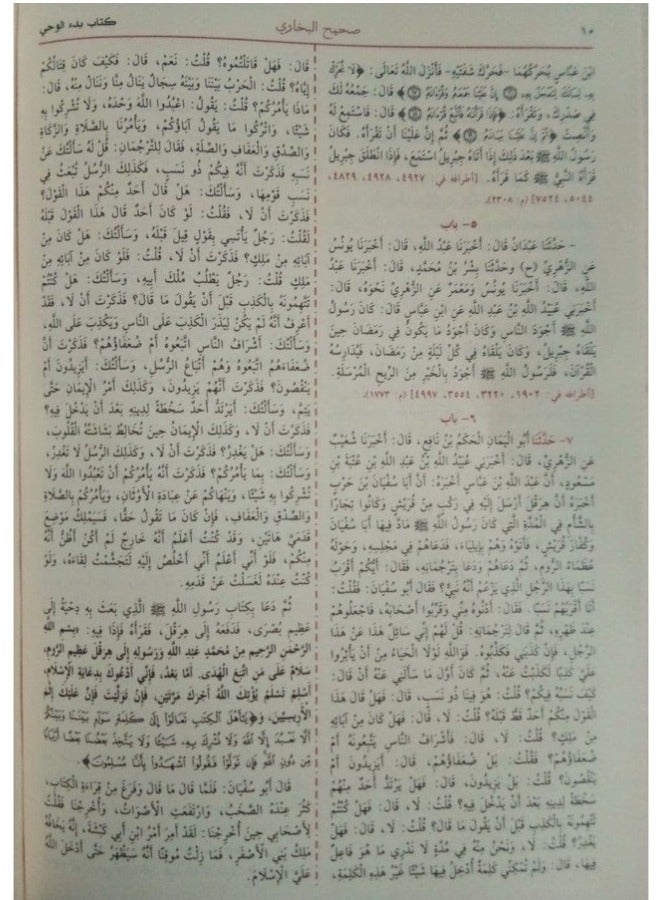 ١٠
صحيح البخاري
كتاب بدء الوحي
ابْنُ عَبَّاسٍ يُحَرِّكُهُمَا -فَحَرَّكَ شَفَتَيْهِ- فَأَنْزَلَ اللَّهُ تَعَالَى: ﴿لَا تُحَرِّكْ
بِهِ لِسَانَكَ لِتَعْجَلَ بِهِ ۝ إِنَّ عَلَيْنَا جَمْعَهُ وَقُرْآنَهُ﴾ قَالَ: جَمْعُهُ لَكَ
فِي صَدْرِكَ، وَتَقْرَأَهُ: ﴿فَإِذَا قَرَأْنَاهُ فَاتَّبِعْ قُرْآنَهُ﴾ قَالَ: فَاسْتَمِعْ لَهُ
وَأَنْصِتْ ﴿ثُمَّ إِنَّ عَلَيْنَا بَيَانَهُ﴾ ثُمَّ إِنَّ عَلَيْنَا أَنْ تَقْرَأَهُ. فَكَانَ
رَسُولُ اللَّهِ ﷺ بَعْدَ ذَلِكَ إِذَا أَتَاهُ جِبْرِيلُ اسْتَمَعَ، فَإِذَا انْطَلَقَ جِبْرِيلُ
قَرَأَهُ النَّبِيُّ ﷺ كَمَا قَرَأَهُ. [أطرافه في: ٤٩٢٧، ٤٩٢٨، ٤٩٢٩،
٥٠٤٤، ٧٥٢٤] (م: ٢٣٠٨).
٥- باب
- حَدَّثَنَا عَبْدَانُ قَالَ: أَخْبَرَنَا عَبْدُ اللهِ، قَالَ: أَخْبَرَنَا يُونُسُ
عَنِ الزُّهْرِيِّ (ح) وحَدَّثَنَا بِشْرُ بْنُ مُحَمَّدٍ، قَالَ: أَخْبَرَنَا عَبْدُ
اللهِ، قَالَ: أَخْبَرَنَا يُونُسُ وَمَعْمَرٌ عَنِ الزُّهْرِيِّ نَحْوَهُ، قَالَ:
أَخْبَرَنِي عُبَيْدُ اللهِ بْنُ عَبْدِ اللهِ عَنِ ابْنِ عَبَّاسٍ قَالَ: كَانَ رَسُولُ
اللهِ ﷺ أَجْوَدَ النَّاسِ وَكَانَ أَجْوَدَ مَا يَكُونُ فِي رَمَضَانَ حِينَ
يَلْقَاهُ جِبْرِيلُ، وَكَانَ يَلْقَاهُ فِي كُلِّ لَيْلَةٍ مِنْ رَمَضَانَ، فَيُدَارِسُهُ
الْقُرْآنَ، فَلَرَسُولُ اللهِ ﷺ أَجْوَدُ بِالْخَيْرِ مِنَ الرِّيحِ الْمُرْسَلَةِ.
[أطرافه في: ١٩٠٢، ٣٢٢٠، ٣٥٥٤، ٤٩٩٧] (م: ١٧٧٣).
٦- باب
٧- حَدَّثَنَا أَبُو الْيَمَانِ الْحَكَمُ بْنُ نَافِعٍ، قَالَ: أَخْبَرَنَا شُعَيْبٌ
عَنِ الزُّهْرِيِّ، قَالَ: أَخْبَرَنِي عُبَيْدُ اللهِ بْنُ عَبْدِ اللهِ بْنِ عُتْبَةَ بْنِ
مَسْعُودٍ، أَنَّ عَبْدَ اللهِ بْنَ عَبَّاسٍ أَخْبَرَهُ: أَنَّ أَبَا سُفْيَانَ بْنَ حَرْبٍ
أَخْبَرَهُ أَنَّ هِرَقْلَ أَرْسَلَ إِلَيْهِ فِي رَكْبٍ مِنْ قُرَيْشٍ وَكَانُوا تِجَارًا
بِالشَّأْمِ فِي الْمُدَّةِ الَّتِي كَانَ رَسُولُ اللهِ ﷺ مَادَّ فِيهَا أَبَا سُفْيَانَ
وَكُفَّارَ قُرَيْشٍ، فَأَتَوْهُ وَهُمْ بِإِيلِيَاءَ، فَدَعَاهُمْ فِي مَجْلِسِهِ، وَحَوْلَهُ
عُظَمَاءُ الرُّومِ، ثُمَّ دَعَاهُمْ وَدَعَا بِتَرْجُمَانِهِ، فَقَالَ: أَيُّكُمْ أَقْرَبُ
نَسَبًا بِهَذَا الرَّجُلِ الَّذِي يَزْعُمُ أَنَّهُ نَبِيٌّ؟ فَقَالَ أَبُو سُفْيَانَ: فَقُلْتُ:
أَنَا أَقْرَبُهُمْ نَسَبًا. فَقَالَ: أَدْنُوهُ مِنِّي وَقَرِّبُوا أَصْحَابَهُ، فَاجْعَلُوهُمْ
عِنْدَ ظَهْرِهِ، ثُمَّ قَالَ لِتَرْجُمَانِهِ: قُلْ لَهُمْ إِنِّي سَائِلٌ هَذَا عَنْ هَذَا
الرَّجُلِ، فَإِنْ كَذَبَنِي فَكَذِّبُوهُ. فَوَاللهِ لَوْلَا الْحَيَاءُ مِنْ أَنْ يَأْثِرُوا
عَلَيَّ كَذِبًا لَكَذَبْتُ عَنْهُ، ثُمَّ كَانَ أَوَّلَ مَا سَأَلَنِي عَنْهُ أَنْ قَالَ:
كَيْفَ نَسَبُهُ فِيكُمْ؟ قُلْتُ: هُوَ فِينَا ذُو نَسَبٍ، قَالَ: فَهَلْ قَالَ هَذَا
الْقَوْلَ مِنْكُمْ أَحَدٌ قَطُّ قَبْلَهُ؟ قُلْتُ: لَا، قَالَ: فَهَلْ كَانَ مِنْ آبَائِهِ
مِنْ مَلِكٍ؟ قُلْتُ: لَا، قَالَ: فَأَشْرَافُ النَّاسِ يَتَّبِعُونَهُ أَمْ
ضُعَفَاؤُهُمْ؟ فَقُلْتُ: بَلْ ضُعَفَاؤُهُمْ، قَالَ: أَيَزِيدُونَ أَمْ
يَنْقُصُونَ؟ قُلْتُ: بَلْ يَزِيدُونَ، قَالَ: فَهَلْ يَرْتَدُّ أَحَدٌ مِنْهُمْ
سَخْطَةً لِدِينِهِ بَعْدَ أَنْ يَدْخُلَ فِيهِ؟ قُلْتُ: لَا، قَالَ: فَهَلْ كُنْتُمْ
تَتَّهِمُونَهُ بِالْكَذِبِ قَبْلَ أَنْ يَقُولَ مَا قَالَ؟ قُلْتُ: لَا، قَالَ: فَهَلْ
يَغْدِرُ؟ قُلْتُ: لَا، وَنَحْنُ مِنْهُ فِي مُدَّةٍ لَا نَدْرِي مَا هُوَ فَاعِلٌ
فِيهَا، قَالَ: وَلَمْ تُمْكِنِّي كَلِمَةٌ أُدْخِلُ فِيهَا شَيْئًا غَيْرُ هَذِهِ الْكَلِمَةِ،
قَالَ: فَهَلْ قَاتَلْتُمُوهُ؟ قُلْتُ: نَعَمْ، قَالَ: فَكَيْفَ كَانَ قِتَالُكُمْ
إِيَّاهُ؟ قُلْتُ: الْحَرْبُ بَيْنَنَا وَبَيْنَهُ سِجَالٌ يَنَالُ مِنَّا وَنَنَالُ مِنْهُ، قَالَ:
مَاذَا يَأْمُرُكُمْ؟ قُلْتُ: يَقُولُ: اعْبُدُوا اللهَ وَحْدَهُ، وَلَا تُشْرِكُوا بِهِ
شَيْئًا، وَاتْرُكُوا مَا يَقُولُ آبَاؤُكُمْ، وَيَأْمُرُنَا بِالصَّلَاةِ وَالزَّكَاةِ
وَالصِّدْقِ وَالْعَفَافِ وَالصِّلَةِ، فَقَالَ لِلتَّرْجُمَانِ: قُلْ لَهُ سَأَلْتُكَ عَنْ
نَسَبِهِ فَذَكَرْتَ أَنَّهُ فِيكُمْ ذُو نَسَبٍ، فَكَذَلِكَ الرُّسُلُ تُبْعَثُ فِي
نَسَبِ قَوْمِهَا، وَسَأَلْتُكَ: هَلْ قَالَ أَحَدٌ مِنْكُمْ هَذَا الْقَوْلَ؟
فَذَكَرْتَ أَنْ لَا، فَقُلْتُ: لَوْ كَانَ أَحَدٌ قَالَ هَذَا الْقَوْلَ قَبْلَهُ
لَقُلْتُ: رَجُلٌ يَأْتَسِي بِقَوْلٍ قِيلَ قَبْلَهُ، وَسَأَلْتُكَ: هَلْ كَانَ مِنْ
آبَائِهِ مِنْ مَلِكٍ؟ فَذَكَرْتَ أَنْ لَا، قُلْتُ: فَلَوْ كَانَ مِنْ آبَائِهِ مِنْ
مَلِكٍ قُلْتُ: رَجُلٌ يَطْلُبُ مُلْكَ أَبِيهِ، وَسَأَلْتُكَ: هَلْ كُنْتُمْ
تَتَّهِمُونَهُ بِالْكَذِبِ قَبْلَ أَنْ يَقُولَ مَا قَالَ؟ فَذَكَرْتَ أَنْ لَا، فَقَدْ
أَعْرِفُ أَنَّهُ لَمْ يَكُنْ لِيَذَرَ الْكَذِبَ عَلَى النَّاسِ وَيَكْذِبَ عَلَى اللهِ،
وَسَأَلْتُكَ: أَشْرَافُ النَّاسِ اتَّبَعُوهُ أَمْ ضُعَفَاؤُهُمْ؟ فَذَكَرْتَ أَنَّ
ضُعَفَاءَهُمُ اتَّبَعُوهُ وَهُمْ أَتْبَاعُ الرُّسُلِ، وَسَأَلْتُكَ: أَيَزِيدُونَ أَمْ
يَنْقُصُونَ؟ فَذَكَرْتَ أَنَّهُمْ يَزِيدُونَ، وَكَذَلِكَ أَمْرُ الْإِيمَانِ حَتَّى
يَتِمَّ، وَسَأَلْتُكَ: أَيَرْتَدُّ أَحَدٌ سَخْطَةً لِدِينِهِ بَعْدَ أَنْ يَدْخُلَ فِيهِ؟
فَذَكَرْتَ أَنْ لَا، وَكَذَلِكَ الْإِيمَانُ حِينَ تُخَالِطُ بَشَاشَتُهُ الْقُلُوبَ،
وَسَأَلْتُكَ: هَلْ يَغْدِرُ؟ فَذَكَرْتَ أَنْ لَا، وَكَذَلِكَ الرُّسُلُ لَا تَغْدِرُ،
وَسَأَلْتُكَ: بِمَا يَأْمُرُكُمْ؟ فَذَكَرْتَ أَنَّهُ يَأْمُرُكُمْ أَنْ تَعْبُدُوا اللهَ وَلَا
تُشْرِكُوا بِهِ شَيْئًا، وَيَنْهَاكُمْ عَنْ عِبَادَةِ الْأَوْثَانِ، وَيَأْمُرُكُمْ بِالصَّلَاةِ
وَالصِّدْقِ وَالْعَفَافِ، فَإِنْ كَانَ مَا تَقُولُ حَقًّا، فَسَيَمْلِكُ مَوْضِعَ
قَدَمَيَّ هَاتَيْنِ، وَقَدْ كُنْتُ أَعْلَمُ أَنَّهُ خَارِجٌ لَمْ أَكُنْ أَظُنُّ أَنَّهُ
مِنْكُمْ، فَلَوْ أَنِّي أَعْلَمُ أَنِّي أَخْلُصُ إِلَيْهِ لَتَجَشَّمْتُ لِقَاءَهُ، وَلَوْ
كُنْتُ عِنْدَهُ لَغَسَلْتُ عَنْ قَدَمِهِ.
ثُمَّ دَعَا بِكِتَابِ رَسُولِ اللهِ ﷺ الَّذِي بَعَثَ بِهِ دِحْيَةُ إِلَى
عَظِيمِ بُصْرَى، فَدَفَعَهُ إِلَى هِرَقْلَ، فَقَرَأَهُ فَإِذَا فِيهِ: «بِسْمِ اللهِ
الرَّحْمَنِ الرَّحِيمِ مِنْ مُحَمَّدٍ عَبْدِ اللهِ وَرَسُولِهِ إِلَى هِرَقْلَ عَظِيمِ الرُّومِ،
سَلَامٌ عَلَى مَنِ اتَّبَعَ الْهُدَى. أَمَّا بَعْدُ، فَإِنِّي أَدْعُوكَ بِدِعَايَةِ الْإِسْلَامِ،
أَسْلِمْ تَسْلَمْ يُؤْتِكَ اللهُ أَجْرَكَ مَرَّتَيْنِ، فَإِنْ تَوَلَّيْتَ فَإِنَّ عَلَيْكَ إِثْمَ
الْأَرِيسِيِّينَ، وَ﴿يَا أَهْلَ الْكِتَابِ تَعَالَوْا إِلَى كَلِمَةٍ سَوَاءٍ بَيْنَنَا وَبَيْنَكُمْ
أَلَّا نَعْبُدَ إِلَّا اللهَ وَلَا نُشْرِكَ بِهِ شَيْئًا وَلَا يَتَّخِذَ بَعْضُنَا بَعْضًا أَرْبَابًا
مِنْ دُونِ اللهِ فَإِنْ تَوَلَّوْا فَقُولُوا اشْهَدُوا بِأَنَّا مُسْلِمُونَ﴾.
قَالَ أَبُو سُفْيَانَ: فَلَمَّا قَالَ مَا قَالَ وَفَرَغَ مِنْ قِرَاءَةِ الْكِتَابِ،
كَثُرَ عِنْدَهُ الصَّخَبُ، وَارْتَفَعَتِ الْأَصْوَاتُ، وَأُخْرِجْنَا فَقُلْتُ
لِأَصْحَابِي حِينَ أُخْرِجْنَا: لَقَدْ أَمِرَ أَمْرُ ابْنِ أَبِي كَبْشَةَ، إِنَّهُ يَخَافُهُ
مَلِكُ بَنِي الْأَصْفَرِ، فَمَا زِلْتُ مُوقِنًا أَنَّهُ سَيَظْهَرُ حَتَّى أَدْخَلَ اللهُ
عَلَيَّ الْإِسْلَامَ.